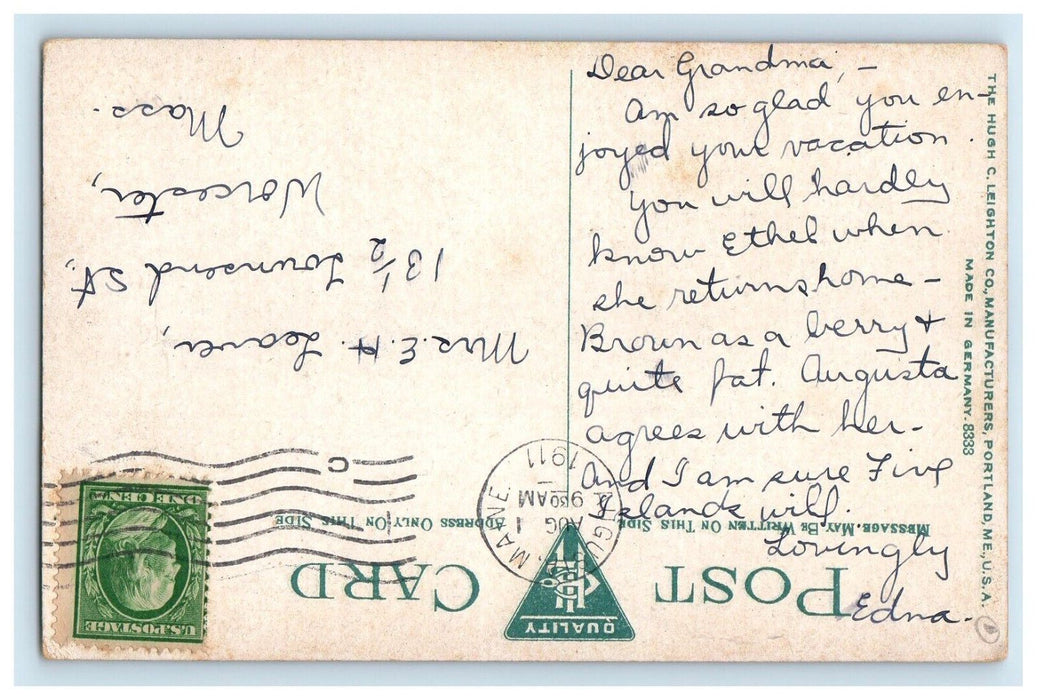 Dear Grandma, -
Am so glad you en-
joyed your vacation.
You will hardly
know Ethel when
she returns home -
Brown as a berry &
quite fat. Augusta
agrees with her -
And I am sure Five
Islands will.
Lovingly
Edna.
THE HUGH C. LEIGHTON CO., MANUFACTURERS, PORTLAND, ME., U.S.A.
MADE IN GERMANY. 8333
POST CARD
QUALITY
MESSAGE MAY BE WRITTEN ON THIS SIDE
ADDRESS ONLY ON THIS SIDE
AUGUSTA, MAINE.
AUG 1
9 30 AM
1911
C
U.S. POSTAGE
ONE CENT
Mrs. E. H. Leaver,
13 1/2 Townsend St.,
Worcester,
Mass.